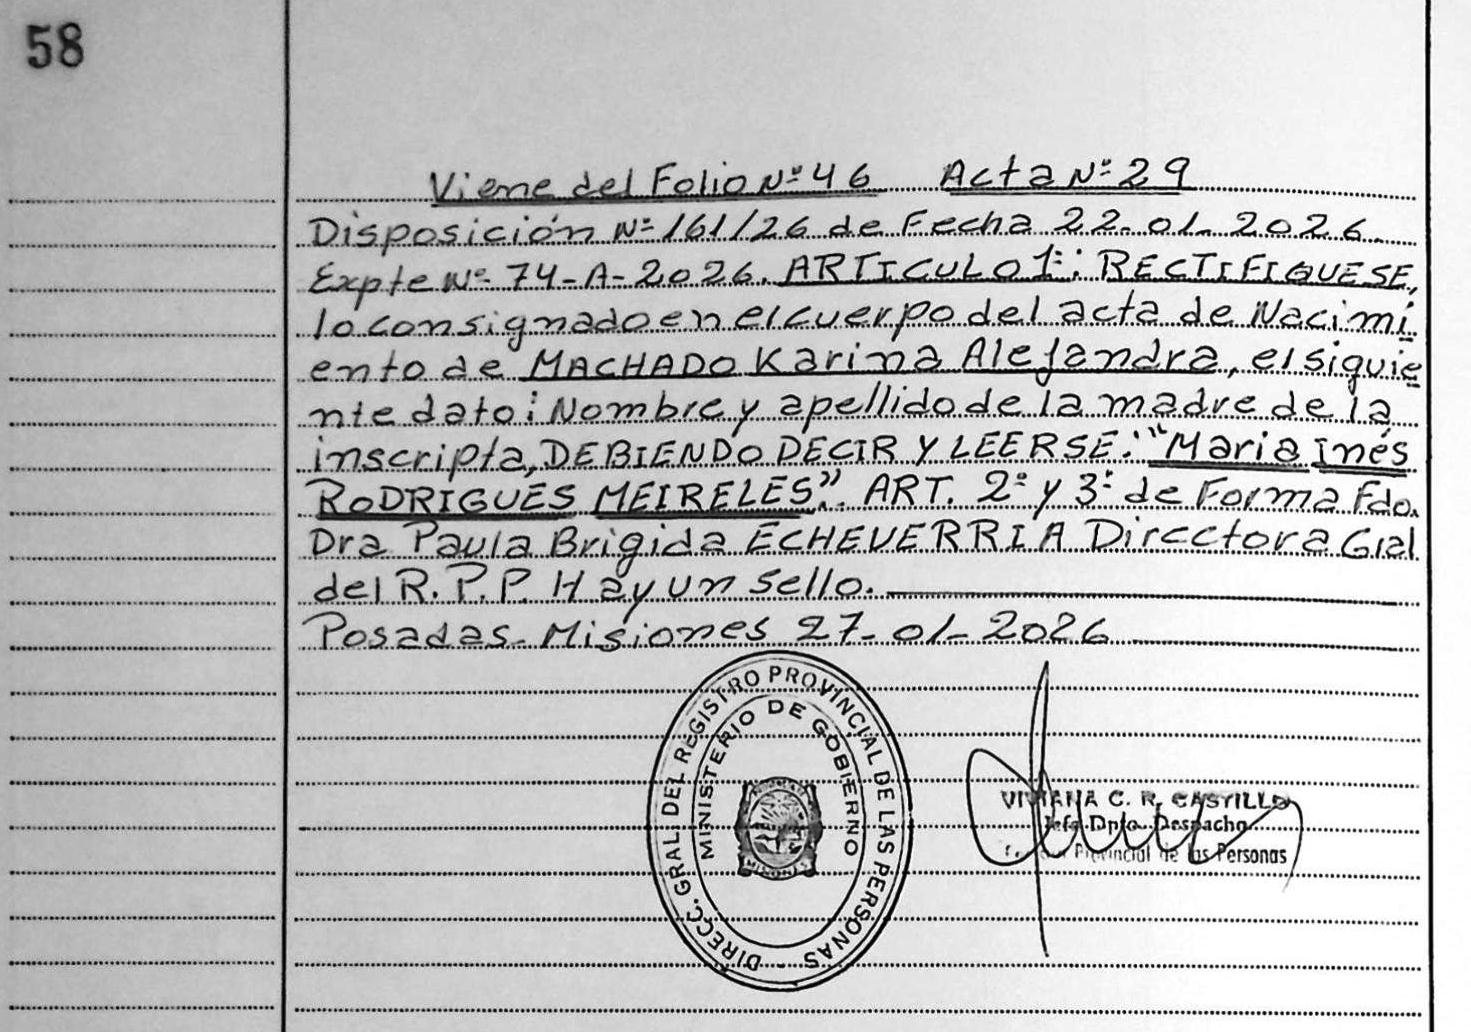 58
Viene del Folio Nº 46 Acta Nº 29
Disposición Nº 161/26 de Fecha 22-01-2026.
Expte Nº 74-A-2026. ARTICULO 1º: RECTIFIQUESE,
lo consignado en el cuerpo del acta de Nacimi
ento de MACHADO Karina Alejandra, el siguie
nte dato: Nombre y apellido de la madre de la
inscripta, DEBIENDO DECIR Y LEERSE: "Maria Inés
RODRIGUES MEIRELES". ART. 2º y 3º de Forma Fdo.
Dra Paula Brigida ECHEVERRIA Directora Gral
del R.P.P. Hay un sello.
Posadas-Misiones 27-01-2026
DIRECC. GRAL. DEL REGISTRO PROVINCIAL DE LAS PERSONAS
MINISTERIO DE GOBIERNO
MISIONES
VIVIANA C. R. CASTILLO
Jefa Dpto. Despacho
Provincial de las Personas